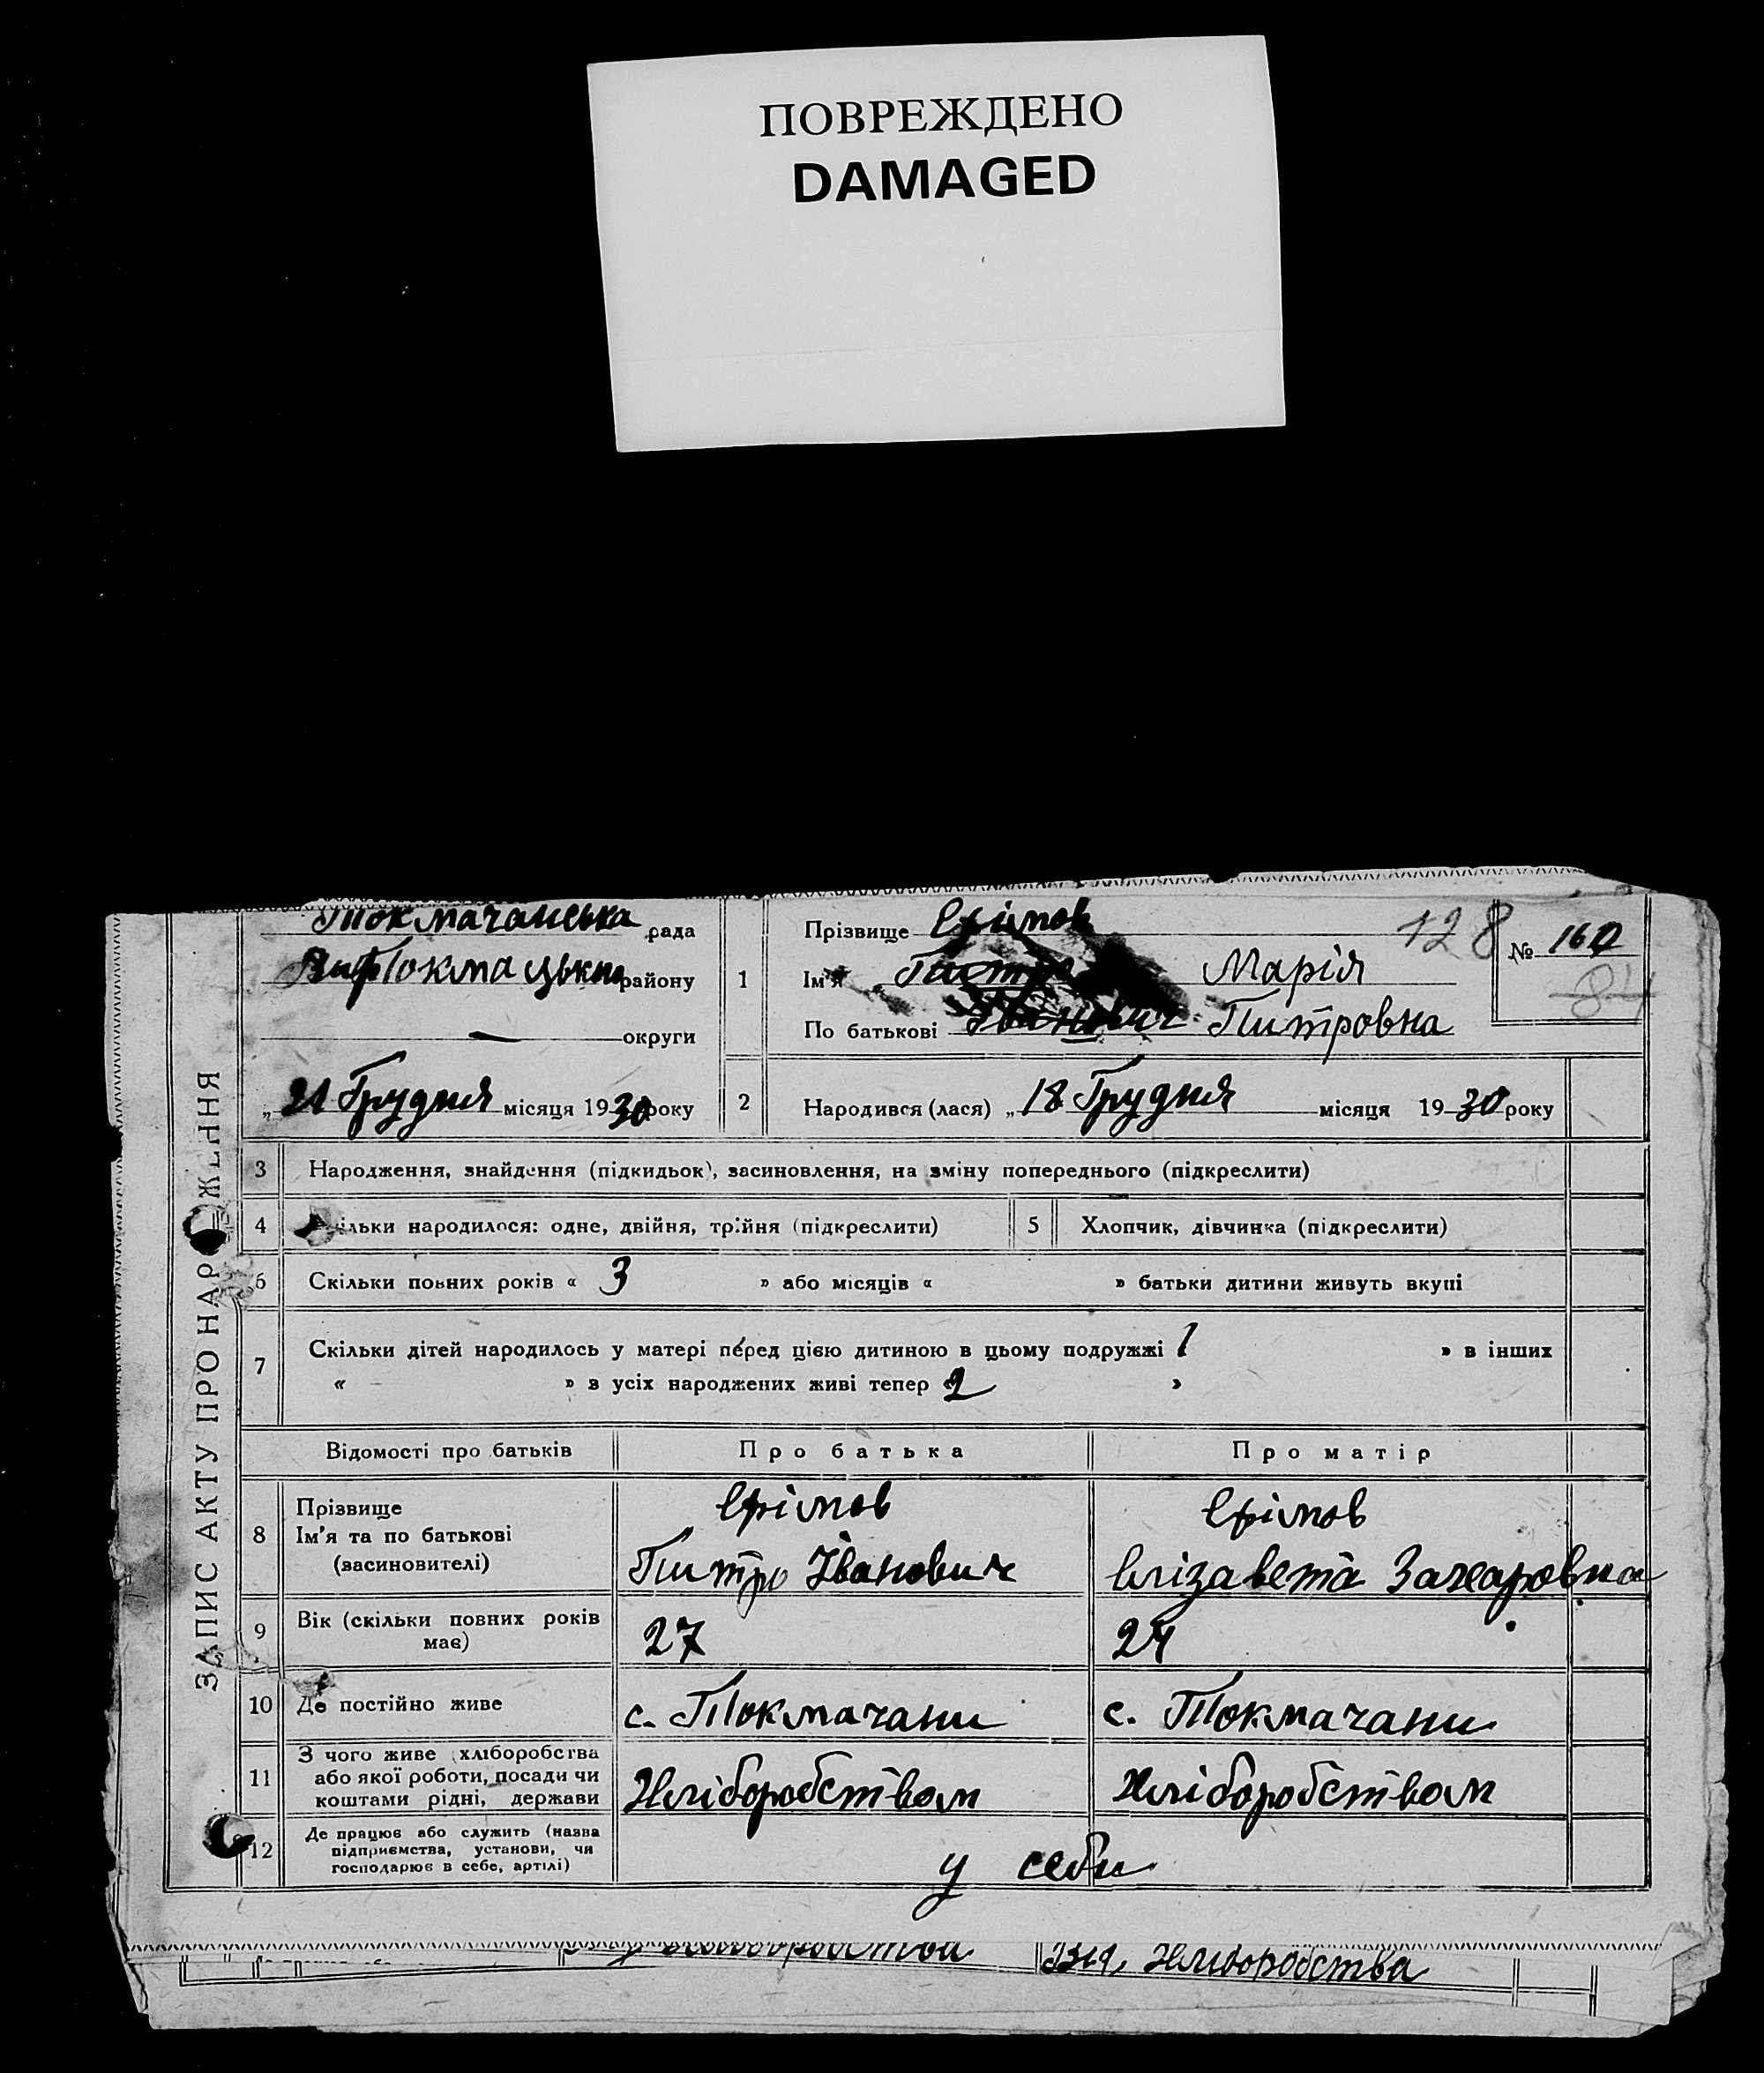 ПОВРЕЖДЕНО
DAMAGED
ЗАПИС АКТУ ПРО НАРОДЖЕННЯ
Токмачанська рада
району
округи
„ 21 Грудня місяця 1930 року
1
Прізвище Єфімов
128
№ 160
84
Ім'я Питро Марія
По батькові Іванович Питровна
2 Народився (лася) „ 18 Грудня місяця 1930 року
3 Народження, знайдення (підкидьок), засиновлення, на зміну попереднього (підкреслити)
4 Скільки народилося: одне, двійня, трійня (підкреслити) 5 Хлопчик, дівчинка (підкреслити)
6 Скільки повних років « 3 » або місяців « » батьки дитини живуть вкупі
7 Скільки дітей народилось у матері перед цією дитиною в цьому подружжі 1 » в інших
« » з усіх народжених живі тепер « 2 »
Відомості про батьків Про батька Про матір
8 Прізвище Єфімов Єфімов
Ім'я та по батькові
(засиновителі) Питро Іванович Єлізавета Захаровна
9 Вік (скільки повних років має) 27 24
10 Де постійно живе с. Токмачани с. Токмачани
11 З чого живе (хліборобства
або якої роботи, посади чи
коштами рідні, держави Хліборобством Хліборобством
12 Де працює або служить (назва
підприємства, установи, чи
господарює в себе, артілі) у себи
Хліборобства